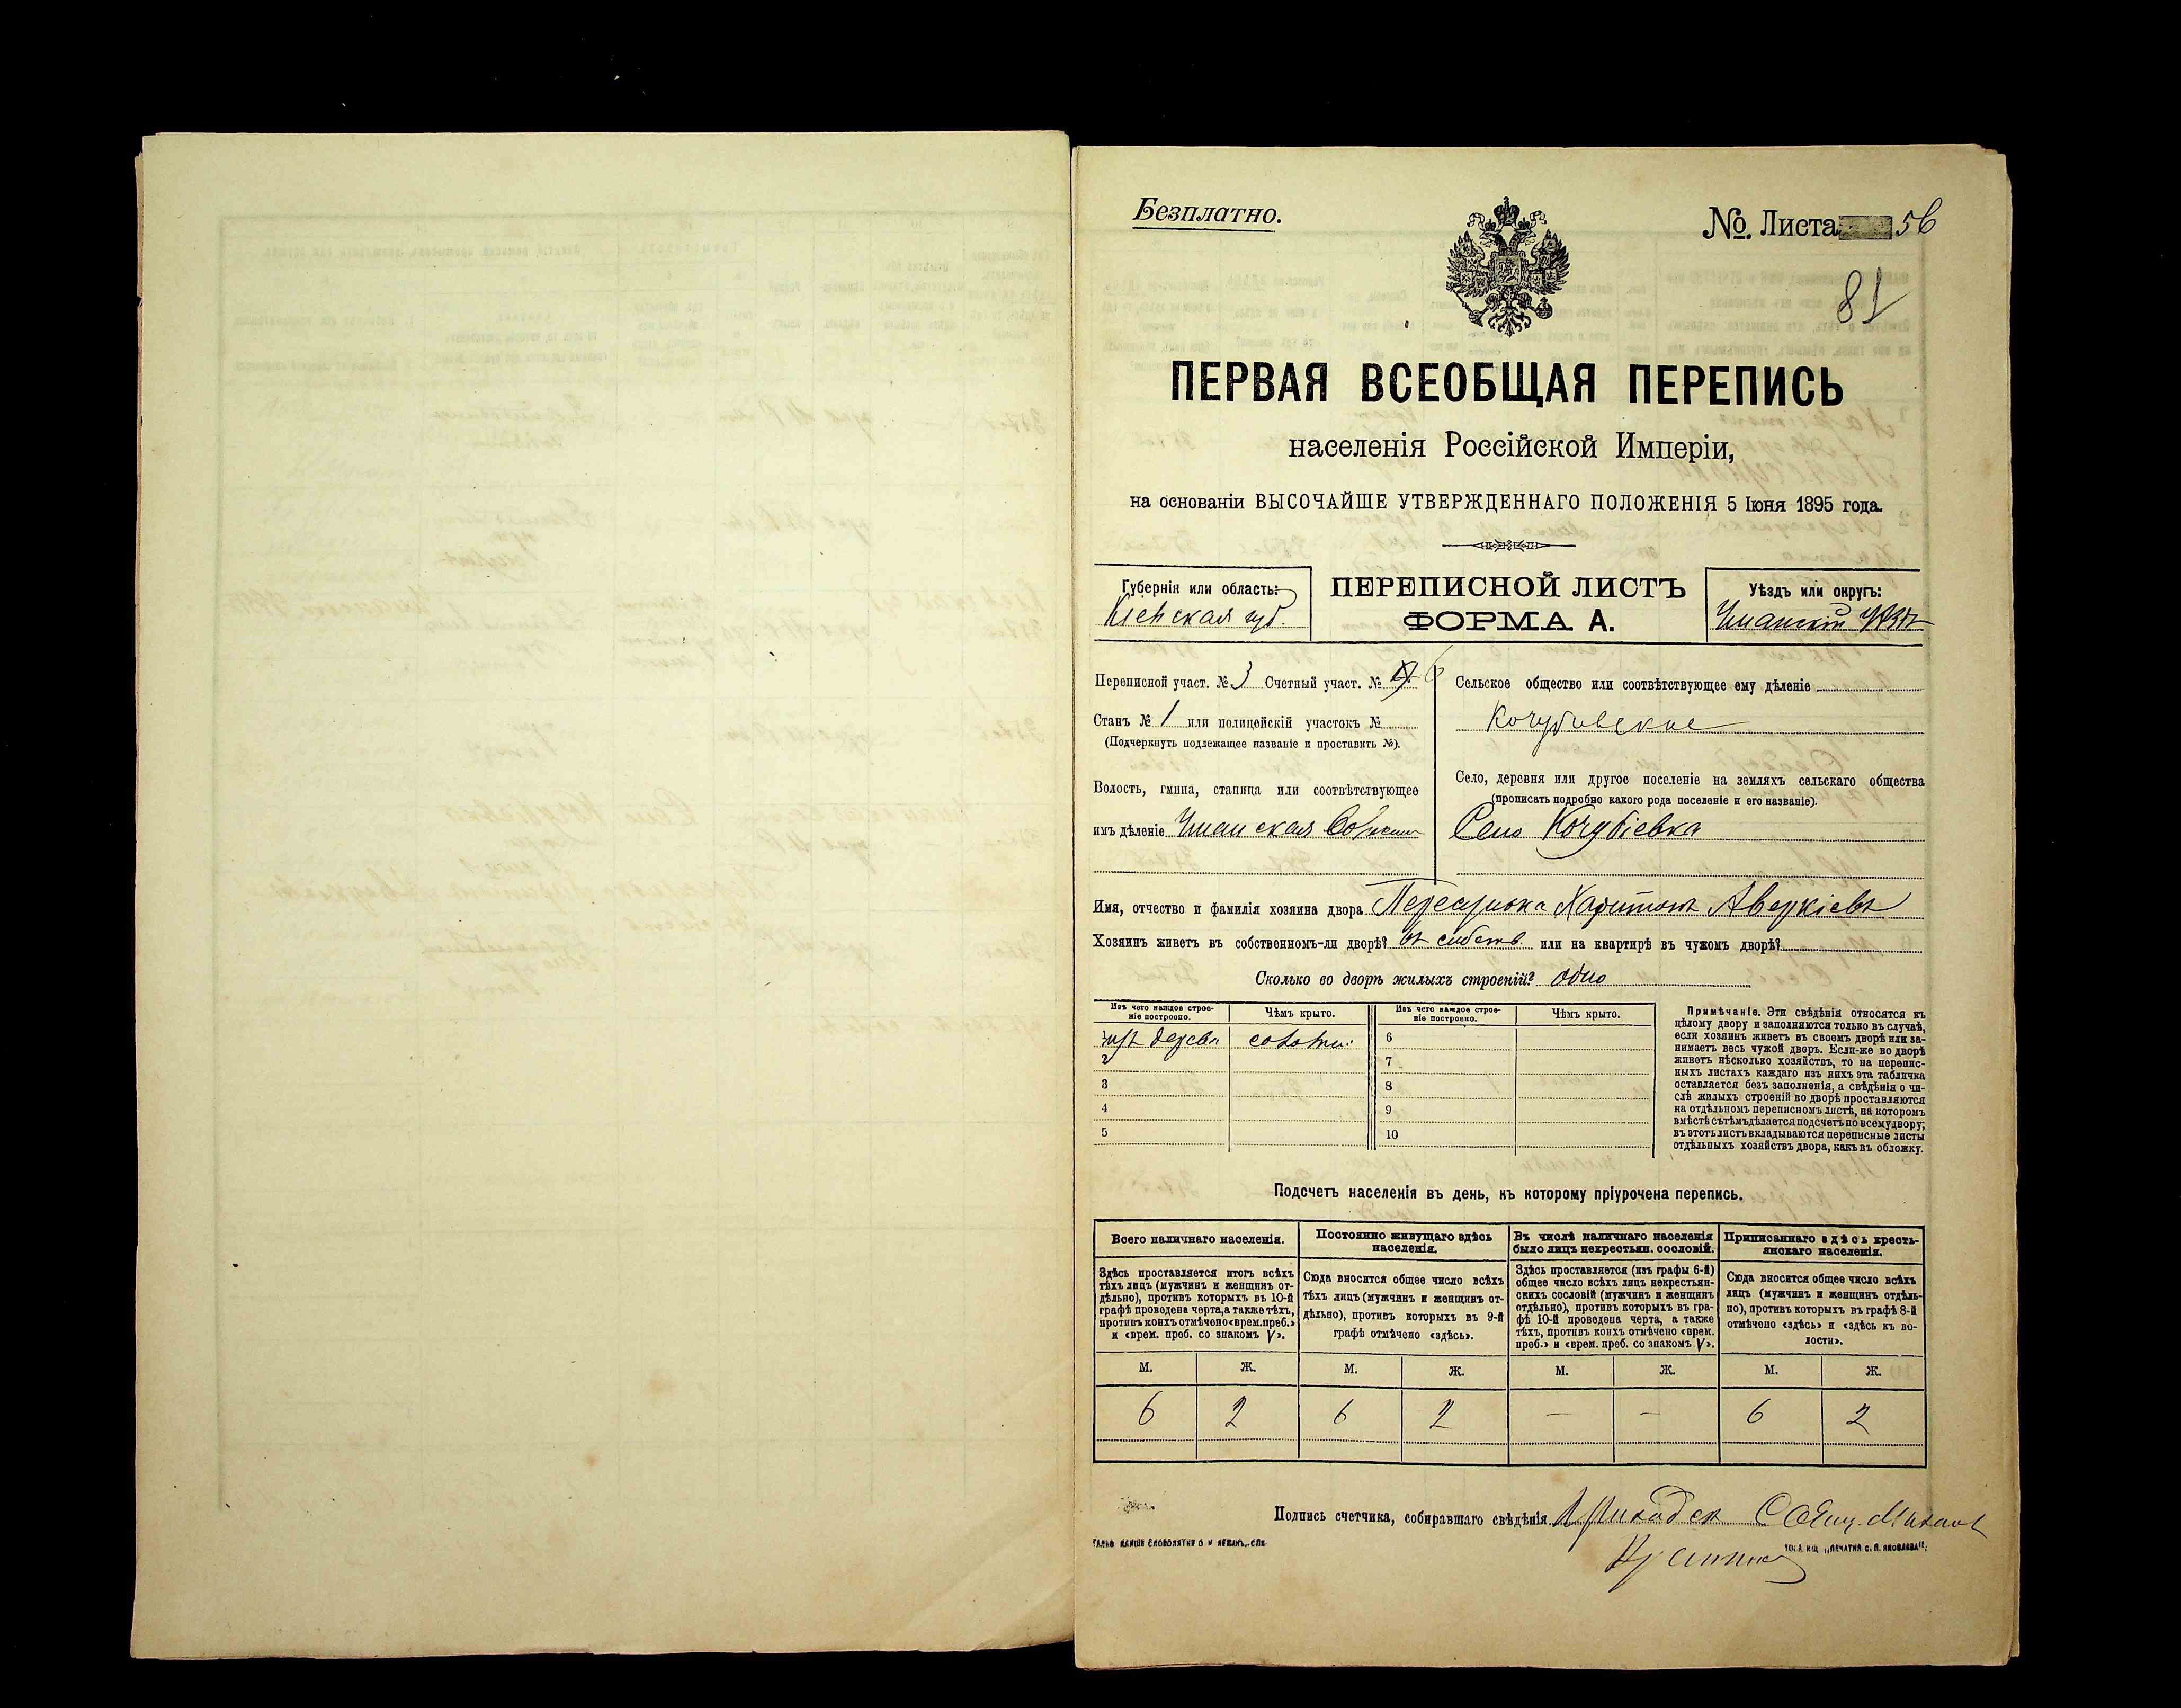 Безплатно.
№ Листа 56
81
ПЕРВАЯ ВСЕОБЩАЯ ПЕРЕПИСЬ
населенія Россійской Имперіи,
на основаніи ВЫСОЧАЙШЕ УТВЕРЖДЕННАГО ПОЛОЖЕНІЯ 5 Іюня 1895 года.
Губернія или область:
Кіевская губ.
ПЕРЕПИСНОЙ ЛИСТЪ
ФОРМА А.
Уѣздъ или округъ:
Уманскій уѣздъ
Переписной участ. № 3 Счетный участ. №
Станъ № 1 или полицейскій участокъ №
(Подчеркнуть подлежащее названіе и проставить №).
Волость, гмина, станица или соотвѣтствующее
имъ дѣленіе Уманская
Сельское общество или соотвѣтствующее ему дѣленіе
Кочубиевское
Село, деревня или другое поселеніе на земляхъ сельскаго общества
(прописать подробно какого рода поселеніе и его названіе).
Село Кочубіевка
Имя, отчество и фамилія хозяина двора Харитонъ Аверкіевъ
Хозяинъ живетъ въ собственномъ-ли дворѣ? въ собств. или на квартирѣ въ чужомъ дворѣ?
Сколько во дворѣ жилыхъ строеній? одно
Изъ чего каждое строе-
ніе построено.
Чѣмъ крыто.
Изъ чего каждое строе-
ніе построено.
Чѣмъ крыто.
изъ дерева солом.
2
3
4
5
6
7
8
9
10
Примѣчаніе. Эти свѣдѣнія относятся къ
цѣлому двору и заполняются только въ случаѣ,
если хозяинъ живетъ въ своемъ дворѣ или за-
нимаетъ весь чужой дворъ. Если-же во дворѣ
живетъ нѣсколько хозяйствъ, то на перепис-
ныхъ листахъ каждаго изъ нихъ эта табличка
оставляется безъ заполненія, а свѣдѣнія о чи-
слѣ жилыхъ строеній во дворѣ проставляются
на отдѣльномъ переписномъ листѣ, на которомъ
вмѣстѣ съ тѣмъ дѣлается подсчетъ по всему двору;
въ этотъ листъ вкладываются переписные листы
отдѣльныхъ хозяйствъ двора, какъ въ обложку.
Подсчетъ населенія въ день, къ которому пріурочена перепись.
Всего наличнаго населенія.
Здѣсь проставляется итогъ всѣхъ
тѣхъ лицъ (мужчинъ и женщинъ от-
дѣльно), противъ которыхъ въ 10-й
графѣ проведена черта, а также тѣхъ,
противъ коихъ отмѣчено «врем. преб.»
и «врем. преб. со знакомъ V».
Постоянно живущаго здѣсь
населенія.
Сюда вносится общее число всѣхъ
тѣхъ лицъ (мужчинъ и женщинъ от-
дѣльно), противъ которыхъ въ 9-й
графѣ отмѣчено «здѣсь».
Въ числѣ наличнаго населенія
было лицъ некрестьян. сословій.
Здѣсь проставляется (изъ графы 6-й)
общее число всѣхъ лицъ некрестьян-
скихъ сословій (мужчинъ и женщинъ
отдѣльно), противъ которыхъ въ гра-
фѣ 10-й проведена черта, а также
тѣхъ, противъ коихъ отмѣчено «врем.
преб.» и «врем. преб. со знакомъ V».
Приписаннаго здѣсь кресть-
янскаго населенія.
Сюда вносится общее число всѣхъ
лицъ (мужчинъ и женщинъ отдѣль-
но), противъ которыхъ въ графѣ 8-й
отмѣчено «здѣсь» и «здѣсь къ во-
лости».
М. Ж. М. Ж. М. Ж. М. Ж.
6 2 6 2 — — 6 2
Подпись счетчика, собиравшаго свѣдѣнія